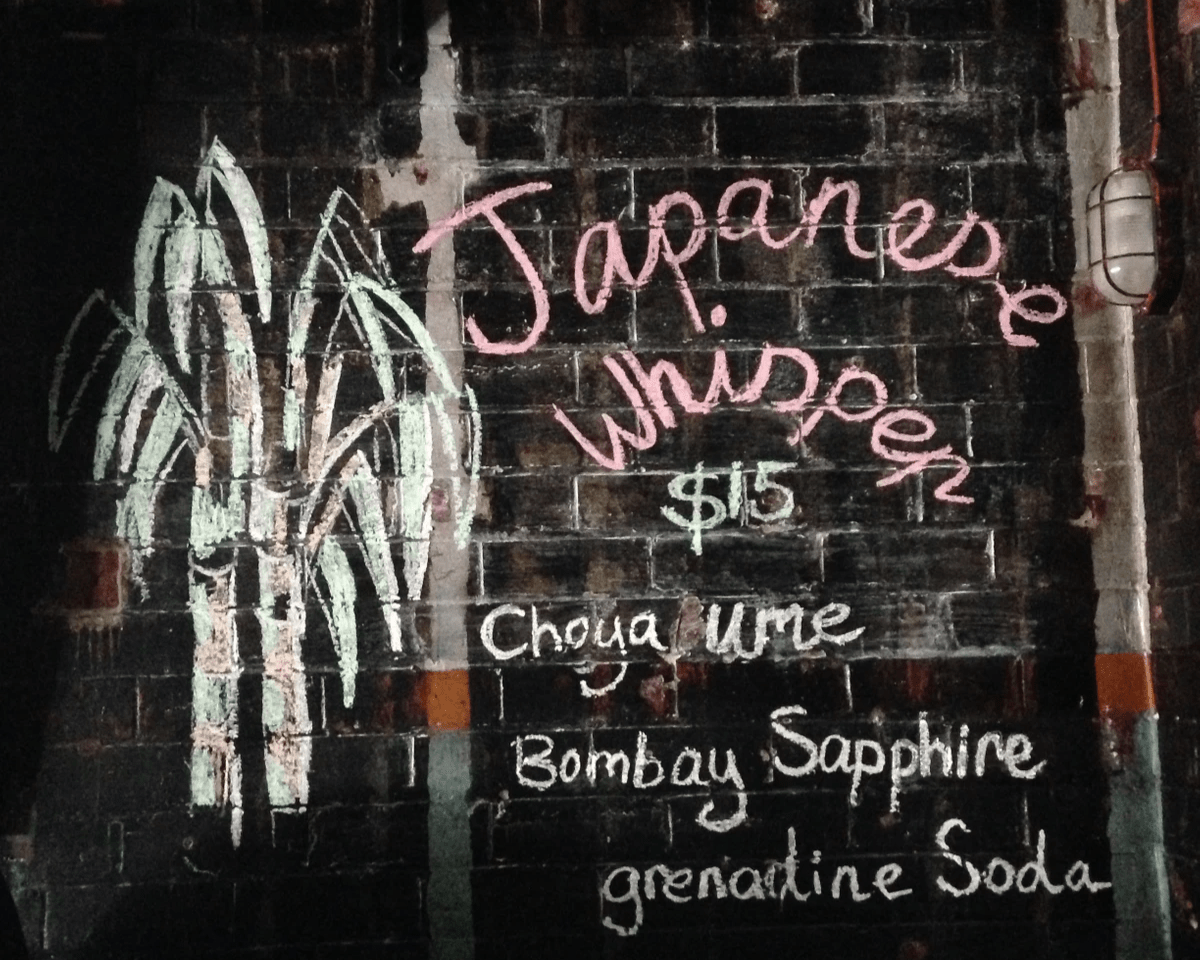 Japanese
Whisper
$15
Choya Ume
Bombay Sapphire
grenadine Soda